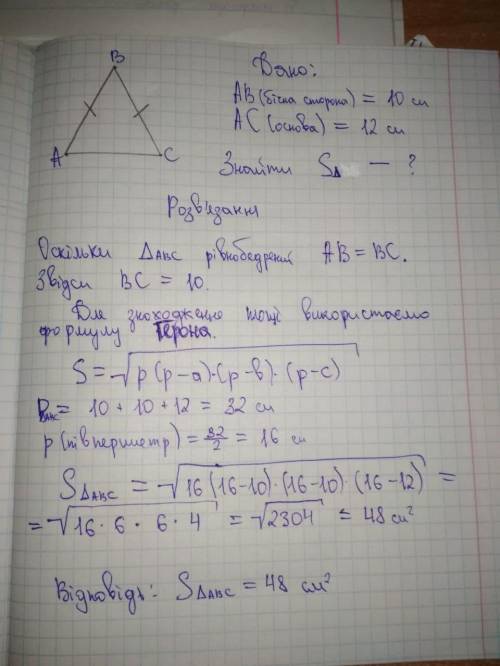 B
A
C
Дано:
AB (бічна сторона) = 10 см
AC (основа) = 12 см
Знайти S∆ — ?
Розв'язання
Оскільки ∆ABC рівнобедрений AB = BC.
Звідси BC = 10.
Для знаходження площі використаємо
формулу Герона.
S = √p(p-a)·(p-b)·(p-c)
P∆ABC = 10 + 10 + 12 = 32 см
p (півпериметр) = 32/2 = 16 см
S∆ABC = √16(16-10)·(16-10)·(16-12) =
= √16·6·6·4 = √2304 = 48 см²
Відповідь: S∆ABC = 48 см²